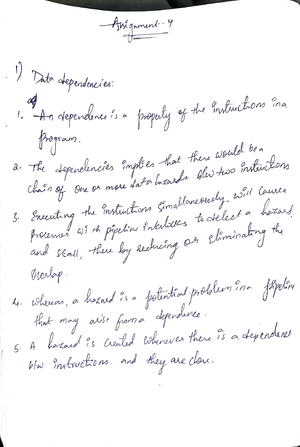 Assignment-4
1) Data dependencies:
1. An dependence is a property of the instructions in a
program.
2. The dependencies implies that there would be a
chain of one or more data hazards b/w two instructions
3. Executing the instructions simallaneously will cause a
processor with pipeline interlocks to detect a hazard
and stall, there by reducing or eliminating the
overlap.
4. whereas, a hazard is a potential problem in a pipeline
that may arise from a dependence.
5. A hazard is created whenever there is a dependence
b/w instructions. and they are close.